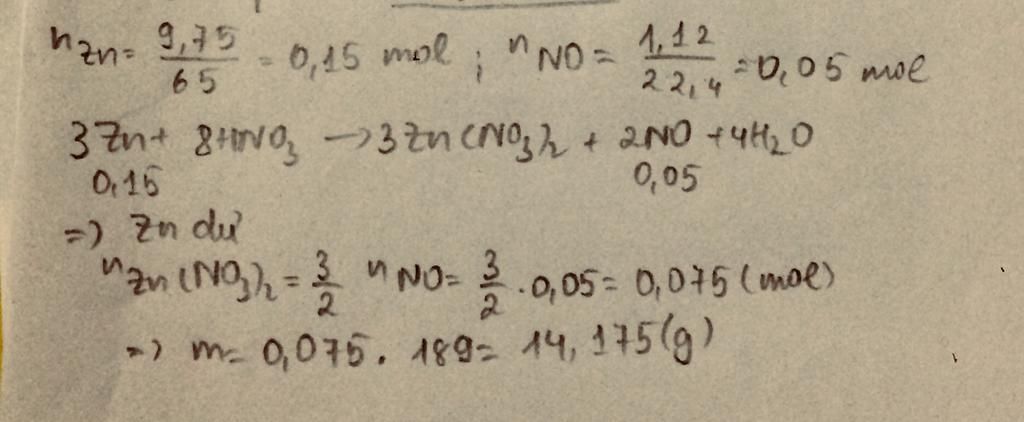 nZn = 9,75/65 = 0,15 mol ; nNO = 1,12/22,4 = 0,05 mol
3Zn + 8HNO3 → 3Zn(NO3)2 + 2NO + 4H2O
0,15 0,05
=) Zn dư
nZn(NO3)2 = 3/2 nNO = 3/2 . 0,05 = 0,075 (mol)
=) m = 0,075 . 189 = 14,175 (g)